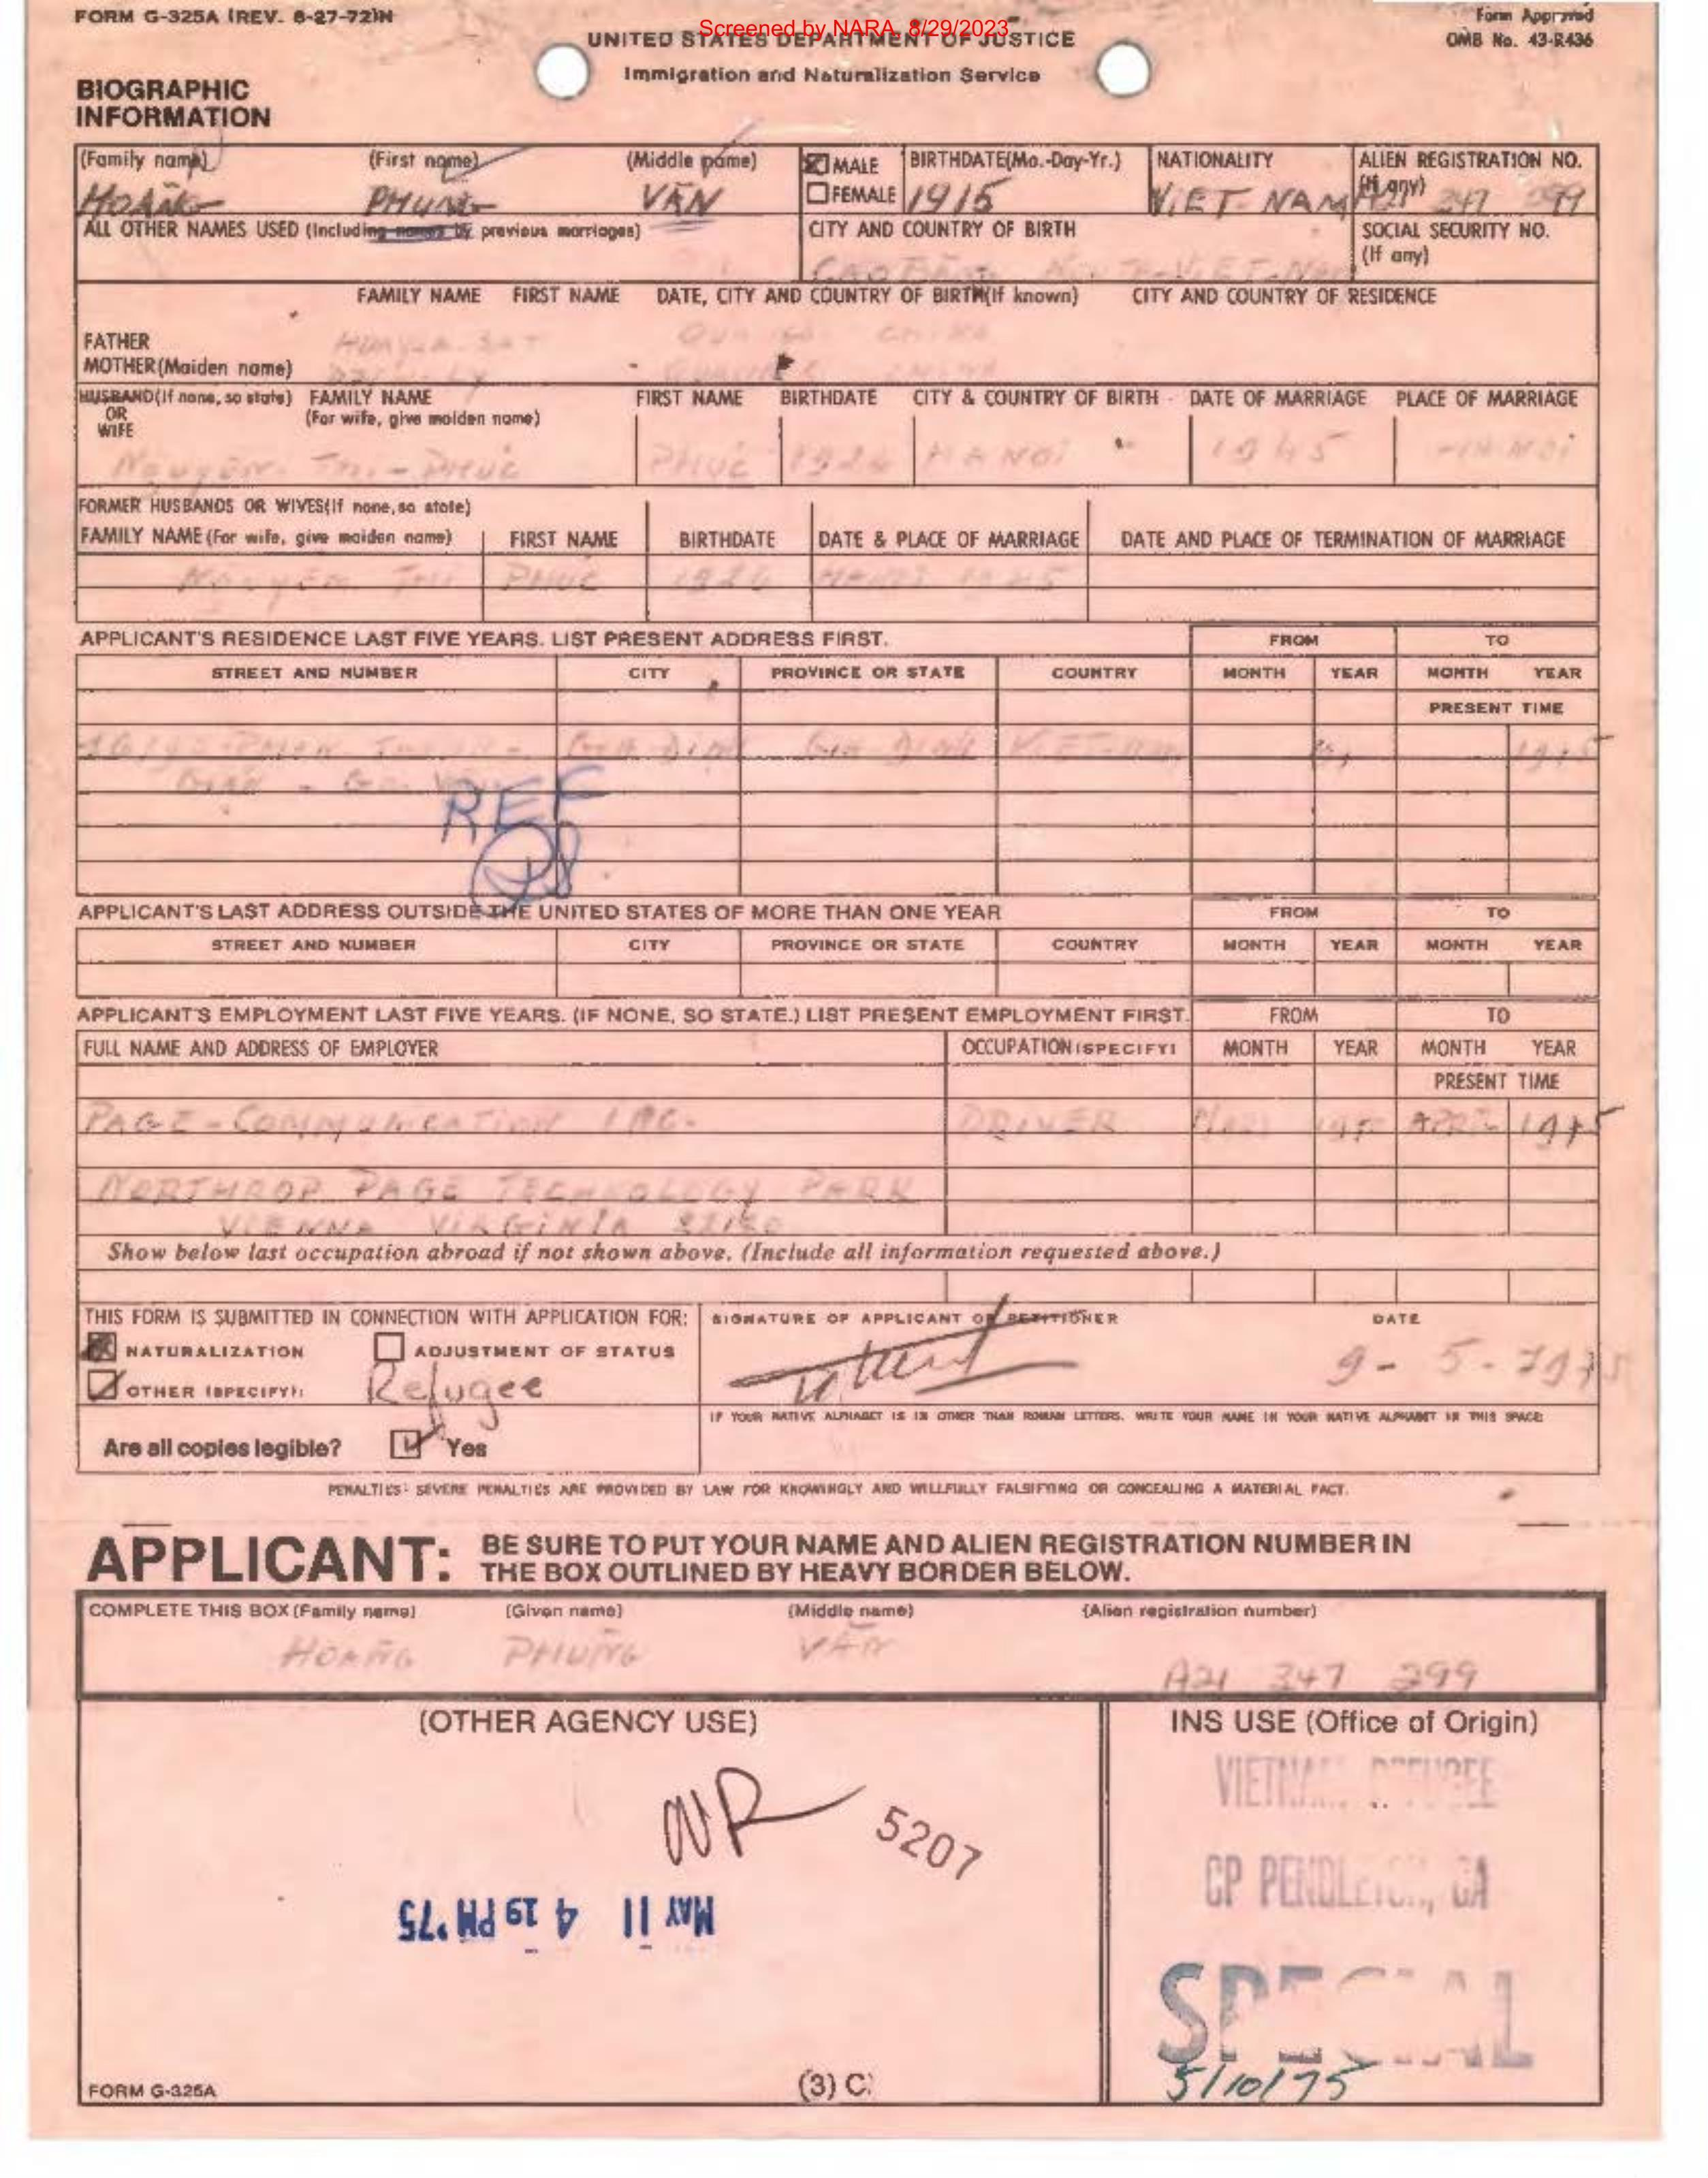 FORM G-325A (REV. 8-27-72)N
Screened by NARA, 8/29/2023
Form Approved
OMB No. 43-R436
UNITED STATES DEPARTMENT OF JUSTICE
Immigration and Naturalization Service
BIOGRAPHIC
INFORMATION
(Family name) (First name) (Middle name) MALE BIRTHDATE(Mo.-Day-Yr.) NATIONALITY ALIEN REGISTRATION NO.
(If any)
HOÀNG PHUNG VĂN FEMALE 1915 VIET NAM
ALL OTHER NAMES USED (Including names by previous marriages) CITY AND COUNTRY OF BIRTH SOCIAL SECURITY NO.
(If any)
FAMILY NAME FIRST NAME DATE, CITY AND COUNTRY OF BIRTH(If known) CITY AND COUNTRY OF RESIDENCE
FATHER
MOTHER(Maiden name)
HUSBAND(If none, so state) FAMILY NAME FIRST NAME BIRTHDATE CITY & COUNTRY OF BIRTH DATE OF MARRIAGE PLACE OF MARRIAGE
OR (For wife, give maiden name)
WIFE
Nguyên Thi - Phuc PHUC 1926 HANOI 1945 HANOI
FORMER HUSBANDS OR WIVES(If none, so state)
FAMILY NAME (For wife, give maiden name) FIRST NAME BIRTHDATE DATE & PLACE OF MARRIAGE DATE AND PLACE OF TERMINATION OF MARRIAGE
Nguyên Thi PHUC 1926 HANOI 1945
APPLICANT'S RESIDENCE LAST FIVE YEARS. LIST PRESENT ADDRESS FIRST. FROM TO
STREET AND NUMBER CITY PROVINCE OR STATE COUNTRY MONTH YEAR MONTH YEAR
PRESENT TIME
GIA DINH GIA DINH VIET-NAM 1975
REF
APPLICANT'S LAST ADDRESS OUTSIDE THE UNITED STATES OF MORE THAN ONE YEAR FROM TO
STREET AND NUMBER CITY PROVINCE OR STATE COUNTRY MONTH YEAR MONTH YEAR
APPLICANT'S EMPLOYMENT LAST FIVE YEARS. (IF NONE, SO STATE.) LIST PRESENT EMPLOYMENT FIRST. FROM TO
FULL NAME AND ADDRESS OF EMPLOYER OCCUPATION (SPECIFY) MONTH YEAR MONTH YEAR
PRESENT TIME
PAGE-COMMUNICATION INC. DRIVER APRIL 1975
NORTHROP PAGE TECHNOLOGY PARK
VIENNA VIRGINIA
Show below last occupation abroad if not shown above. (Include all information requested above.)
THIS FORM IS SUBMITTED IN CONNECTION WITH APPLICATION FOR: SIGNATURE OF APPLICANT OR PETITIONER DATE
NATURALIZATION ADJUSTMENT OF STATUS
9-5-1975
OTHER (SPECIFY): Refugee
IF YOUR NATIVE ALPHABET IS IN OTHER THAN ROMAN LETTERS, WRITE YOUR NAME IN YOUR NATIVE ALPHABET IN THIS SPACE:
Are all copies legible? Yes
PENALTIES: SEVERE PENALTIES ARE PROVIDED BY LAW FOR KNOWINGLY AND WILLFULLY FALSIFYING OR CONCEALING A MATERIAL FACT.
APPLICANT: BE SURE TO PUT YOUR NAME AND ALIEN REGISTRATION NUMBER IN
THE BOX OUTLINED BY HEAVY BORDER BELOW.
COMPLETE THIS BOX (Family name) (Given name) (Middle name) (Alien registration number)
HOANG PHUNG VĂN
A21 347 299
(OTHER AGENCY USE) INS USE (Office of Origin)
VIETNAM REFUGEE
NR 5207
CP PENDLETON, CA
MAY 11 4 19 PM '75
SPECIAL
5/10/75
FORM G-325A (3) C.